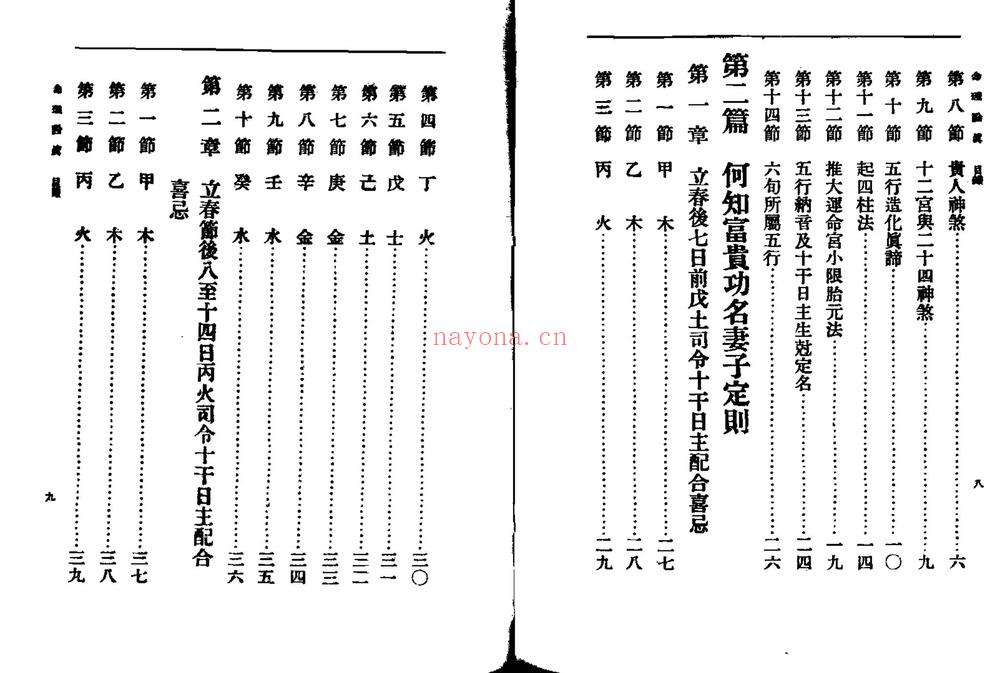 命理 目錄
第八節 貴人神煞……六
第九節 十二宮與二十四神煞……九
第十節 五行造化眞諦……一〇
第十一節 起四柱法……一四
第十二節 推大運命宮小限胎元法……一九
第十三節 五行納音及十干日主生尅定名……二四
第十四節 六旬所屬五行……二六
第二篇 何知富貴功名妻子定則
第一章 立春後七日前戊土司令十干日主配合喜忌
第一節 甲木……二七
第二節 乙木……二八
第三節 丙火……二九
八
第四節 丁火……三〇
第五節 戊土……三一
第六節 己土……三二
第七節 庚金……三三
第八節 辛金……三四
第九節 壬水……三五
第十節 癸水……三六
第二章 立春節後八至十四日丙火司令十干日主配合
喜忌
第一節 甲木……三七
第二節 乙木……三八
第三節 丙火……三九
命理 目錄
九
nayona.cn